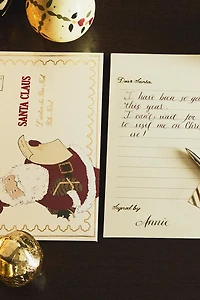 SANTA CLAUS
Dear Santa
I have been so go
this year.
I can't wait for
to visit me on Chris
eve!
Signed by
Annie